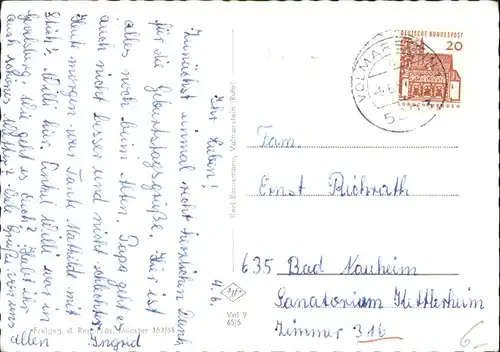 4.6.
Ihr Lieben!
Zunächst einmal recht herzlichen Dank
für die Geburtstagsgrüße. Hier ist
alles noch beim Alten. Papa geht es
auch nicht besser und nicht schlechter.
Heute morgen war Tante Mathild mit
Willi hier. Onkel Willi war in
Wie geht es Euch? Habt ihr
auch schönes Wetter? Viele Grüße von uns
allen Ingrid
Freigeg. d. Reg. Präs. Münster
Karl Bannemann, Volmarstein (Ruhr)
Vol 9
65/5
DEUTSCHE BUNDESPOST
20
LORSCH HESSEN
VOLMARSTEIN
Fam.
Ernst Richrath
635 Bad Nauheim
Sanatorium Kettlerheim
Zimmer 316
6,-